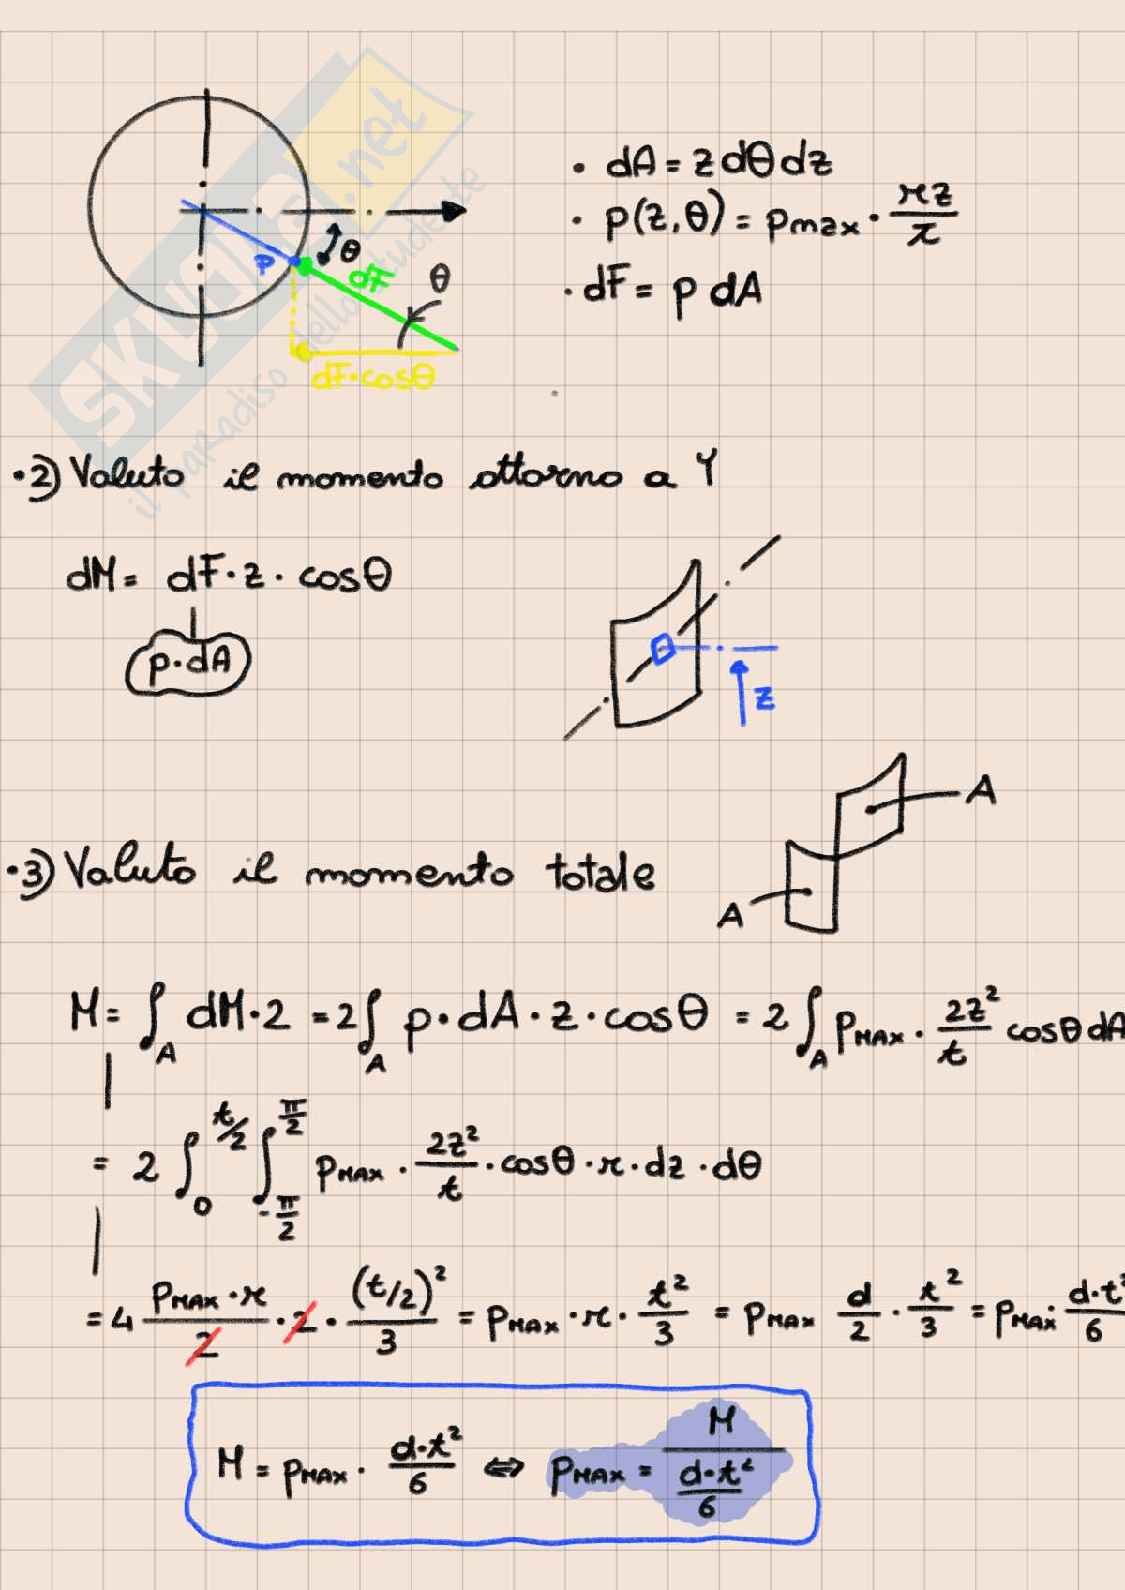 SKUOLA.net
il paradiso dello studente
θ
P
dF
θ
dF·cosθ
· dA = z dθ dz
· p(z,θ) = pmax · rz/t
· dF = p dA
·2) Valuto il momento attorno a Y
dM = dF · z · cosθ
p·dA
z
A
·3) Valuto il momento totale
A
M = ∫_A dM·2 = 2∫_A p·dA·z·cosθ = 2∫_A pMAX · 2z²/t cosθ dA
= 2 ∫_0^{t/2} ∫_{-π/2}^{π/2} pMAX · 2z²/t · cosθ · r · dz · dθ
= 4 pMAX·r/2 · 2 · (t/2)²/3 = pMAX · r · t²/3 = pMAX d/2 · t²/3 = pMAX · d·t²/6
M = pMAX · d·t²/6 ⇔ pMAX = M/(d·t²/6)